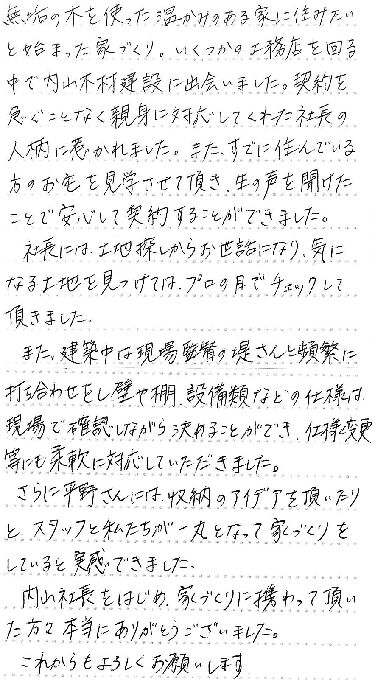 無垢の木を使った温かみのある家に住みたい
と始まった家づくり。いくつかの工務店を回る
中で内山木材建設に出会いました。契約を
急ぐことなく親身に対応してくれた社長の
人柄に惹かれました。また、すでに住んでいる
方のお宅を見学させて頂き、生の声を聞けた
ことで安心して契約することができました。
社長には、土地探しからお世話になり、気に
なる土地を見つけては、プロの目でチェックして
頂きました。
また、建築中は現場監督の堤さんと頻繁に
打ち合わせをし壁や棚、設備類などの仕様は
現場で確認しながら決めることができ、仕様変更
等にも柔軟に対応していただきました。
さらに平野さんには、収納のアイデアを頂いたり
と、スタッフと私たちが一丸となって家づくりを
していると実感できました。
内山社長をはじめ、家づくりに携わって頂い
た方々本当にありがとうございました。
これからもよろしくお願いします